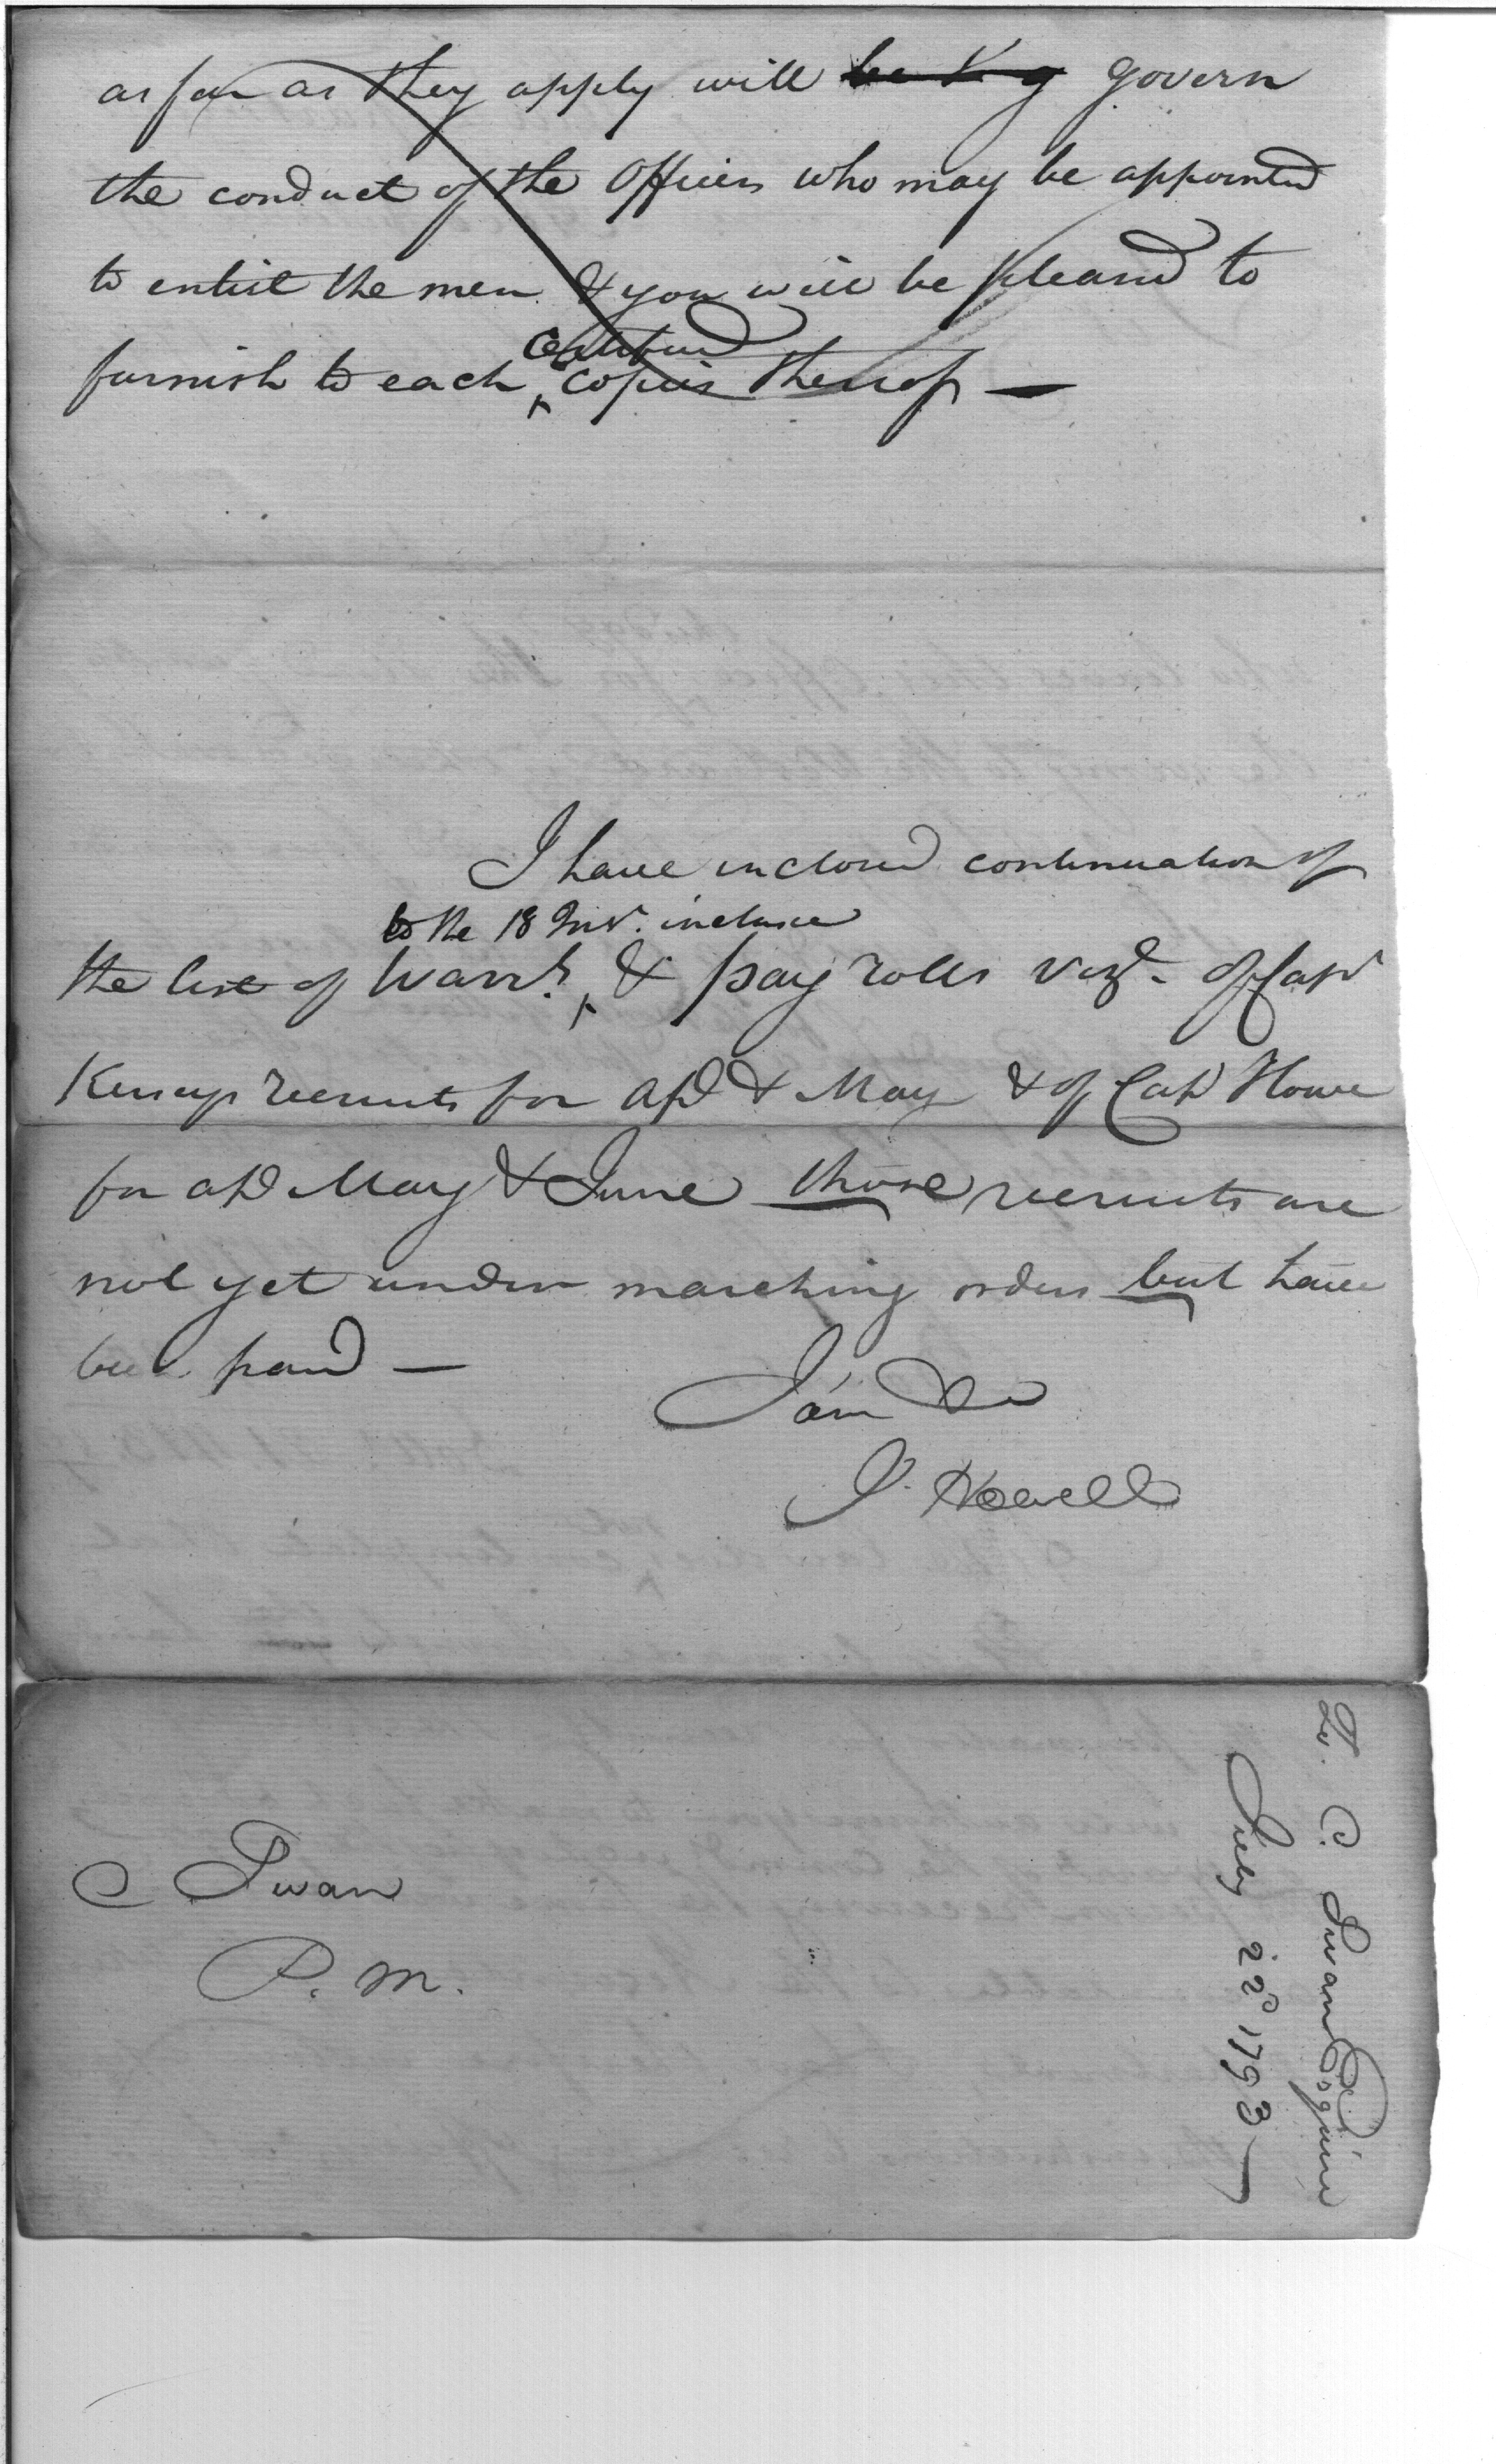 as far as they apply will govern
the conduct of the Officers who may be appointed
to enlist the men & you will be pleased to
certified
furnish to each copies thereof —
I have inclosed continuation of
to the 18 Inst. inclusive
the list of Warrts. & pay rolls vizt. of Capt
recruits for Apl & May & of Capt Howe
for Apl May & June those recruits are
not yet under marching orders but have
been paid —
I am &c
J. Howell
C Swan
P. M.
To. C. Swan Esquire
July 22d 1793 —